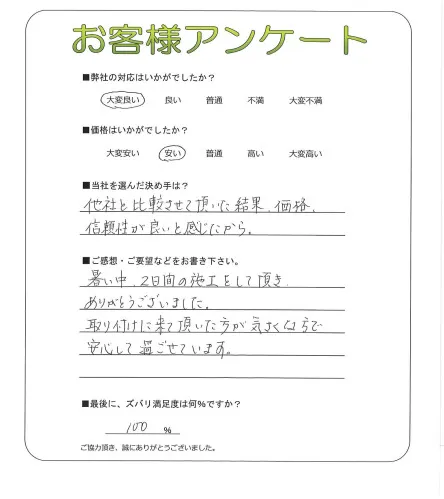 お客様アンケート
■弊社の対応はいかがでしたか?
大変良い 良い 普通 不満 大変不満
■価格はいかがでしたか?
大変安い 安い 普通 高い 大変高い
■当社を選んだ決め手は?
他社と比較させて頂いた結果、価格、
信頼性が良いと感じたから。
■ご感想・ご要望などをお書き下さい。
暑い中、2日間の施工をして頂き
ありがとうございました。
取り付けに来て頂いた方が気さくな方で
安心して過ごせています。
■最後に、ズバリ満足度は何%ですか?
100 %
ご協力頂き、誠にありがとうございました。